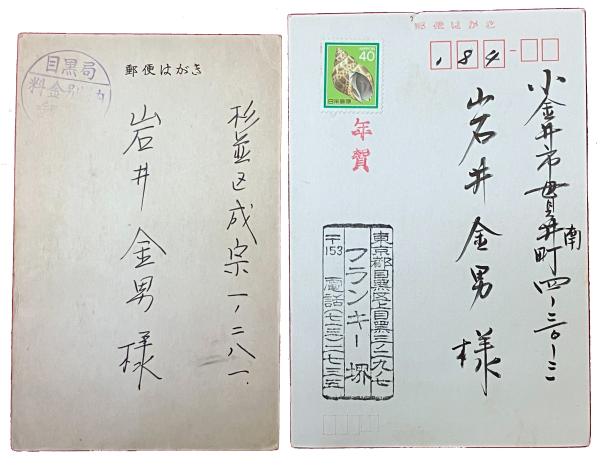 目黒局
料金別納
郵便はがき
杉並区成宗一ノ二八一
岩井金男様
郵便はがき
184
40
NIPPON
日本郵便
年賀
小金井市貫井南町四ノ三〇ノ三
岩井金男様
東京都目黒区上目黒三ノ二九ノ七
フランキー堺
〒153 電話(七一三)二七三五